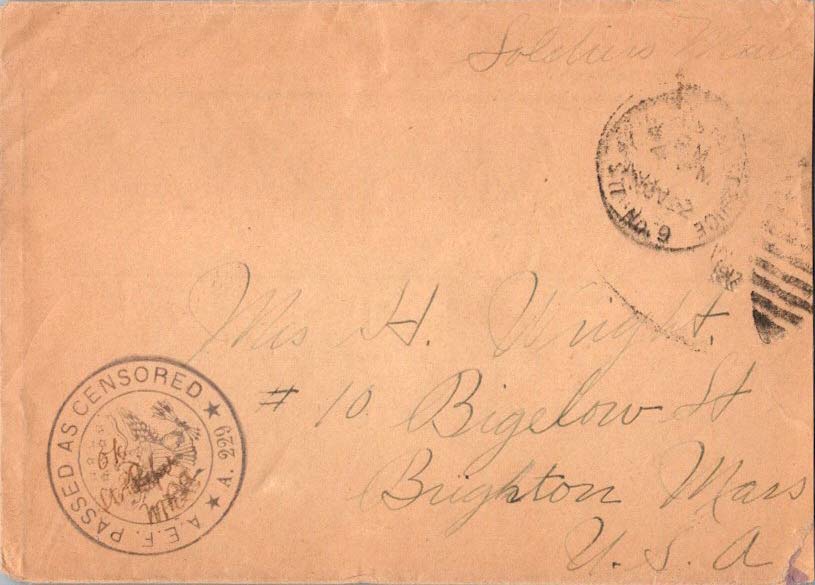 Soldiers Mail
Mrs H. Wright.
# 10 Bigelow St
Brighton Mass
U. S. A
A.E.F. PASSED AS CENSORED ★ A. 229 ★